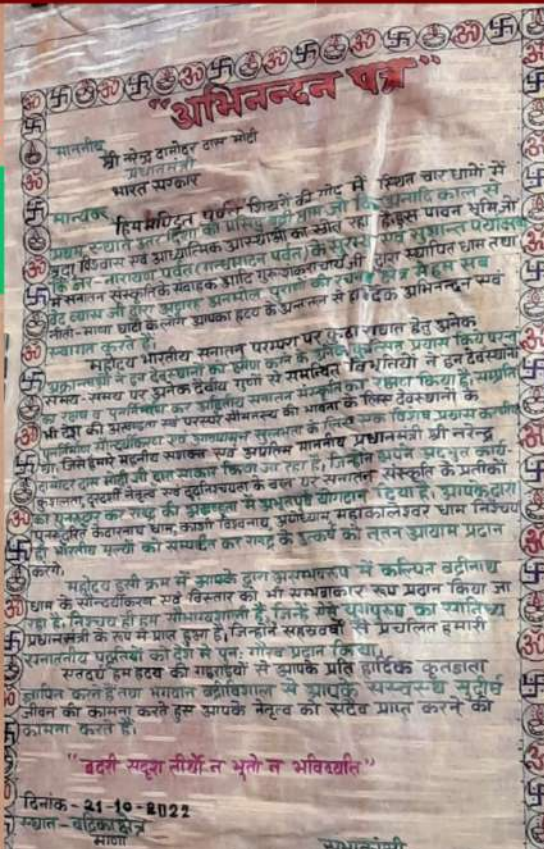 "अभिनन्दन पत्र"
माननीय
श्री नरेन्द्र दामोदर दास मोदी
प्रधानमंत्री
भारत सरकार
मान्यवर
हिममण्डित पर्वत शिखरों की गोद में स्थित चार धामों में
प्रथम उत्तर दिशा का प्रसिद्ध धाम जो कि अनादि काल से
श्रद्धा विश्वास एवं आध्यात्मिक आस्थाओं का स्रोत रहा है। इस पावन भूमि जो
कि नर-नारायण पर्वत (गन्धमादन पर्वत) के सुरम्य एवं सुशान्त
में सनातन संस्कृति के संवाहक आदि गुरु शंकराचार्य जी द्वारा स्थापित धाम तथा
वेद व्यास जी द्वारा अट्ठारह अनमोल पुराणों की रचना क्षेत्र में हम सब
नीती-माणा घाटी के लोग आपका हृदय के अन्तःतल से हार्दिक अभिनन्दन एवं
स्वागत करते हैं।
महोदय भारतीय सनातन परम्परा पर हेतु अनेक
ने इन देवस्थानों का करने के प्रयास किये परन्तु
समय-समय पर अनेक दैवीय गुणों से समन्वित विभूतियों ने इन देवस्थानों
का रक्षण व पुनर्निर्माण कर अद्वितीय सनातन संस्कृति का किया है। सम्प्रति
भी देश की अखण्डता एवं परस्पर सौमनस्य की भावना के लिए देवस्थानों के
पुनर्निर्माण सौन्दर्यीकरण एवं सुलभता के लिए एक विशेष प्रयास
था, जिसे हमारे एवं अप्रतिम माननीय प्रधानमंत्री श्री नरेन्द्र
दामोदर दास मोदी जी द्वारा साकार किया जा रहा है, जिन्होंने अपने अद्भुत कार्य-
कुशलता, दूरदर्शी नेतृत्व एवं के बल पर सनातन संस्कृति के प्रतीकों
का कर राष्ट्र की अखण्डता में योगदान दिया है। आपके द्वारा
केदारनाथ धाम, काशी विश्वनाथ, महाकालेश्वर धाम निश्चय
ही भारतीय मूल्यों को कर राष्ट्र के उत्कर्ष को नूतन आयाम प्रदान
करेंगे।
महोदय इसी क्रम में आपके द्वारा में कल्पित बद्रीनाथ
धाम के सौन्दर्यीकरण एवं विस्तार को भी रूप प्रदान किया जा
रहा है, निश्चय ही हम सौभाग्यशाली हैं, जिन्हें ऐसे युगपुरुष का सानिध्य
प्रधानमंत्री के रूप में प्राप्त हुआ है, जिन्होंने से प्रचलित हमारी
सनातनीय को देश में पुनः गौरव प्रदान किया।
हम हृदय की गहराईयों से आपके प्रति हार्दिक कृतज्ञता
ज्ञापित करते हैं तथा भगवान बद्रीविशाल से आपके सुदीर्घ
जीवन की कामना करते हुए आपके नेतृत्व को सदैव प्राप्त करने की
कामना करते हैं।
"बदरी सदृश तीर्थो न भूतो न भविष्यति"
दिनांक - 21-10-2022
स्थान - बद्रिकाक्षेत्र
माणा